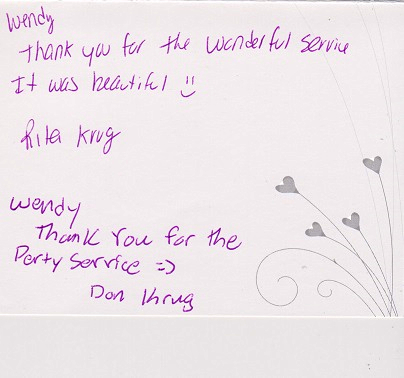 Wendy
Thank you for the wonderful service
It was beautiful :)
Rita Krug
Wendy
Thank You for the
Party Service =)
Don Krug